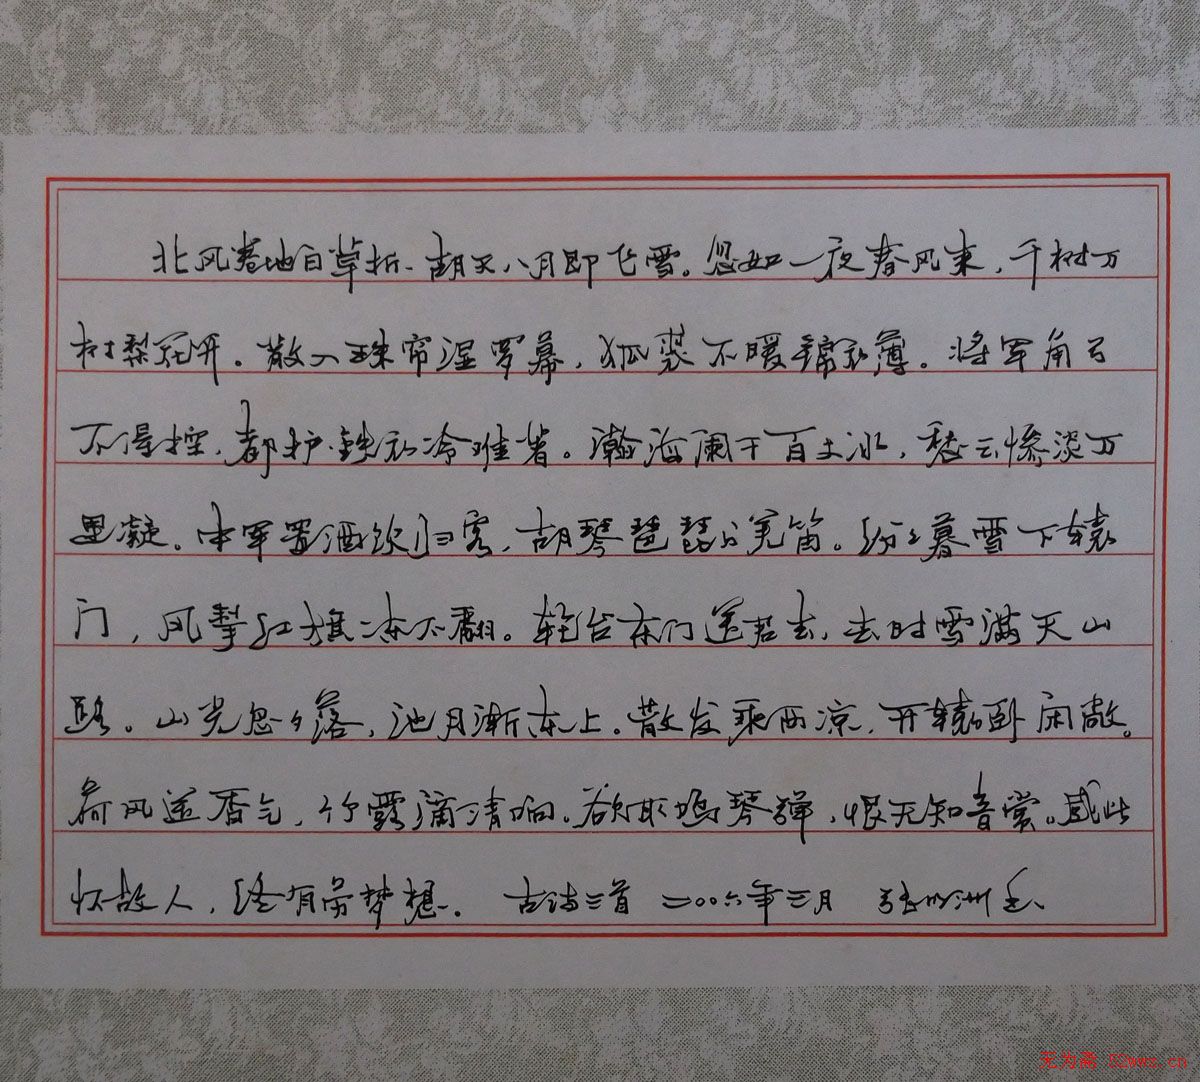 北风卷地白草折、胡天八月即飞雪。忽如一夜春风来,千树万
树梨花开。散入珠帘湿罗幕,狐裘不暖锦衾薄。将军角弓
不得控,都护铁衣冷难着。瀚海阑干百丈冰,愁云惨淡万
里凝。中军置酒饮归客,胡琴琵琶与羌笛。纷纷暮雪下辕
门,风掣红旗冻不翻。轮台东门送君去,去时雪满天山
路。山光忽々落,池月渐东上。散发乘凉,开辕卧闲敞。
荷风送香气,竹露滴清响。欲取鸣琴弹,恨无知音赏。感此
怀故人,终有劳梦想。 古诗二首 二〇〇六年三月